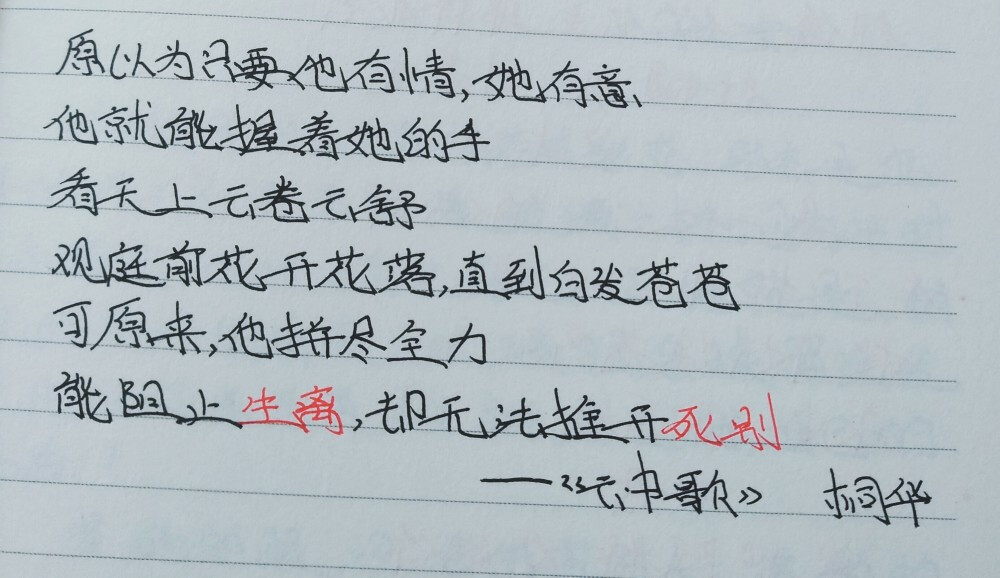 原以为只要他有情,她有意、
他就能握着她的手
看天上云卷云舒
观庭前花开花落,直到白发苍苍
可原来,他拼尽全力
能阻止生离,却无法推开死别
——《云中歌》 桐华